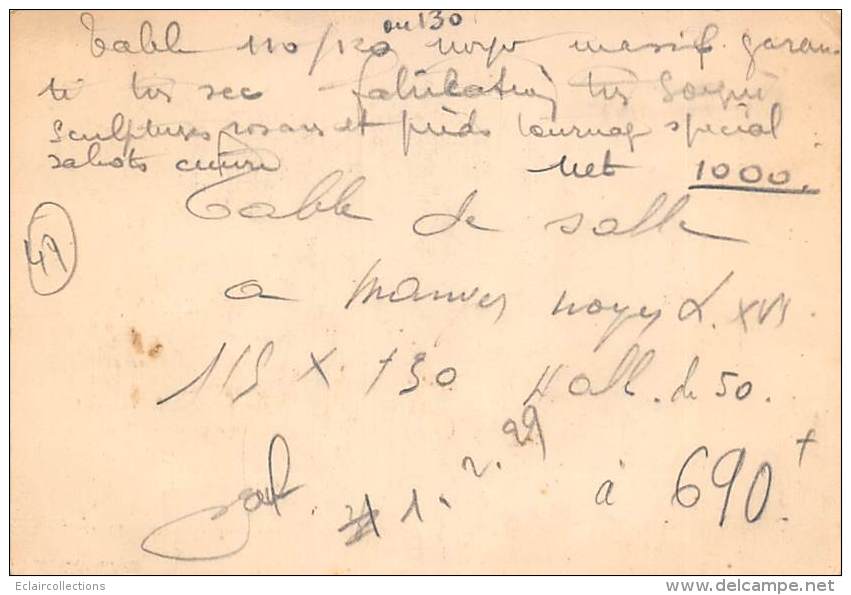 ou 130
Table 110/120 noyer massif garan-
ti très sec fabrication très soigné
sculptures rosaces et pieds tournage spécial
sabots cuivre net 1000.
Table de salle
49
a manger noyer L. XVI
115 X 130 4 all. de 50.
1. 2. 29 à 690 f
Eclaircollections
www.delcampe.net